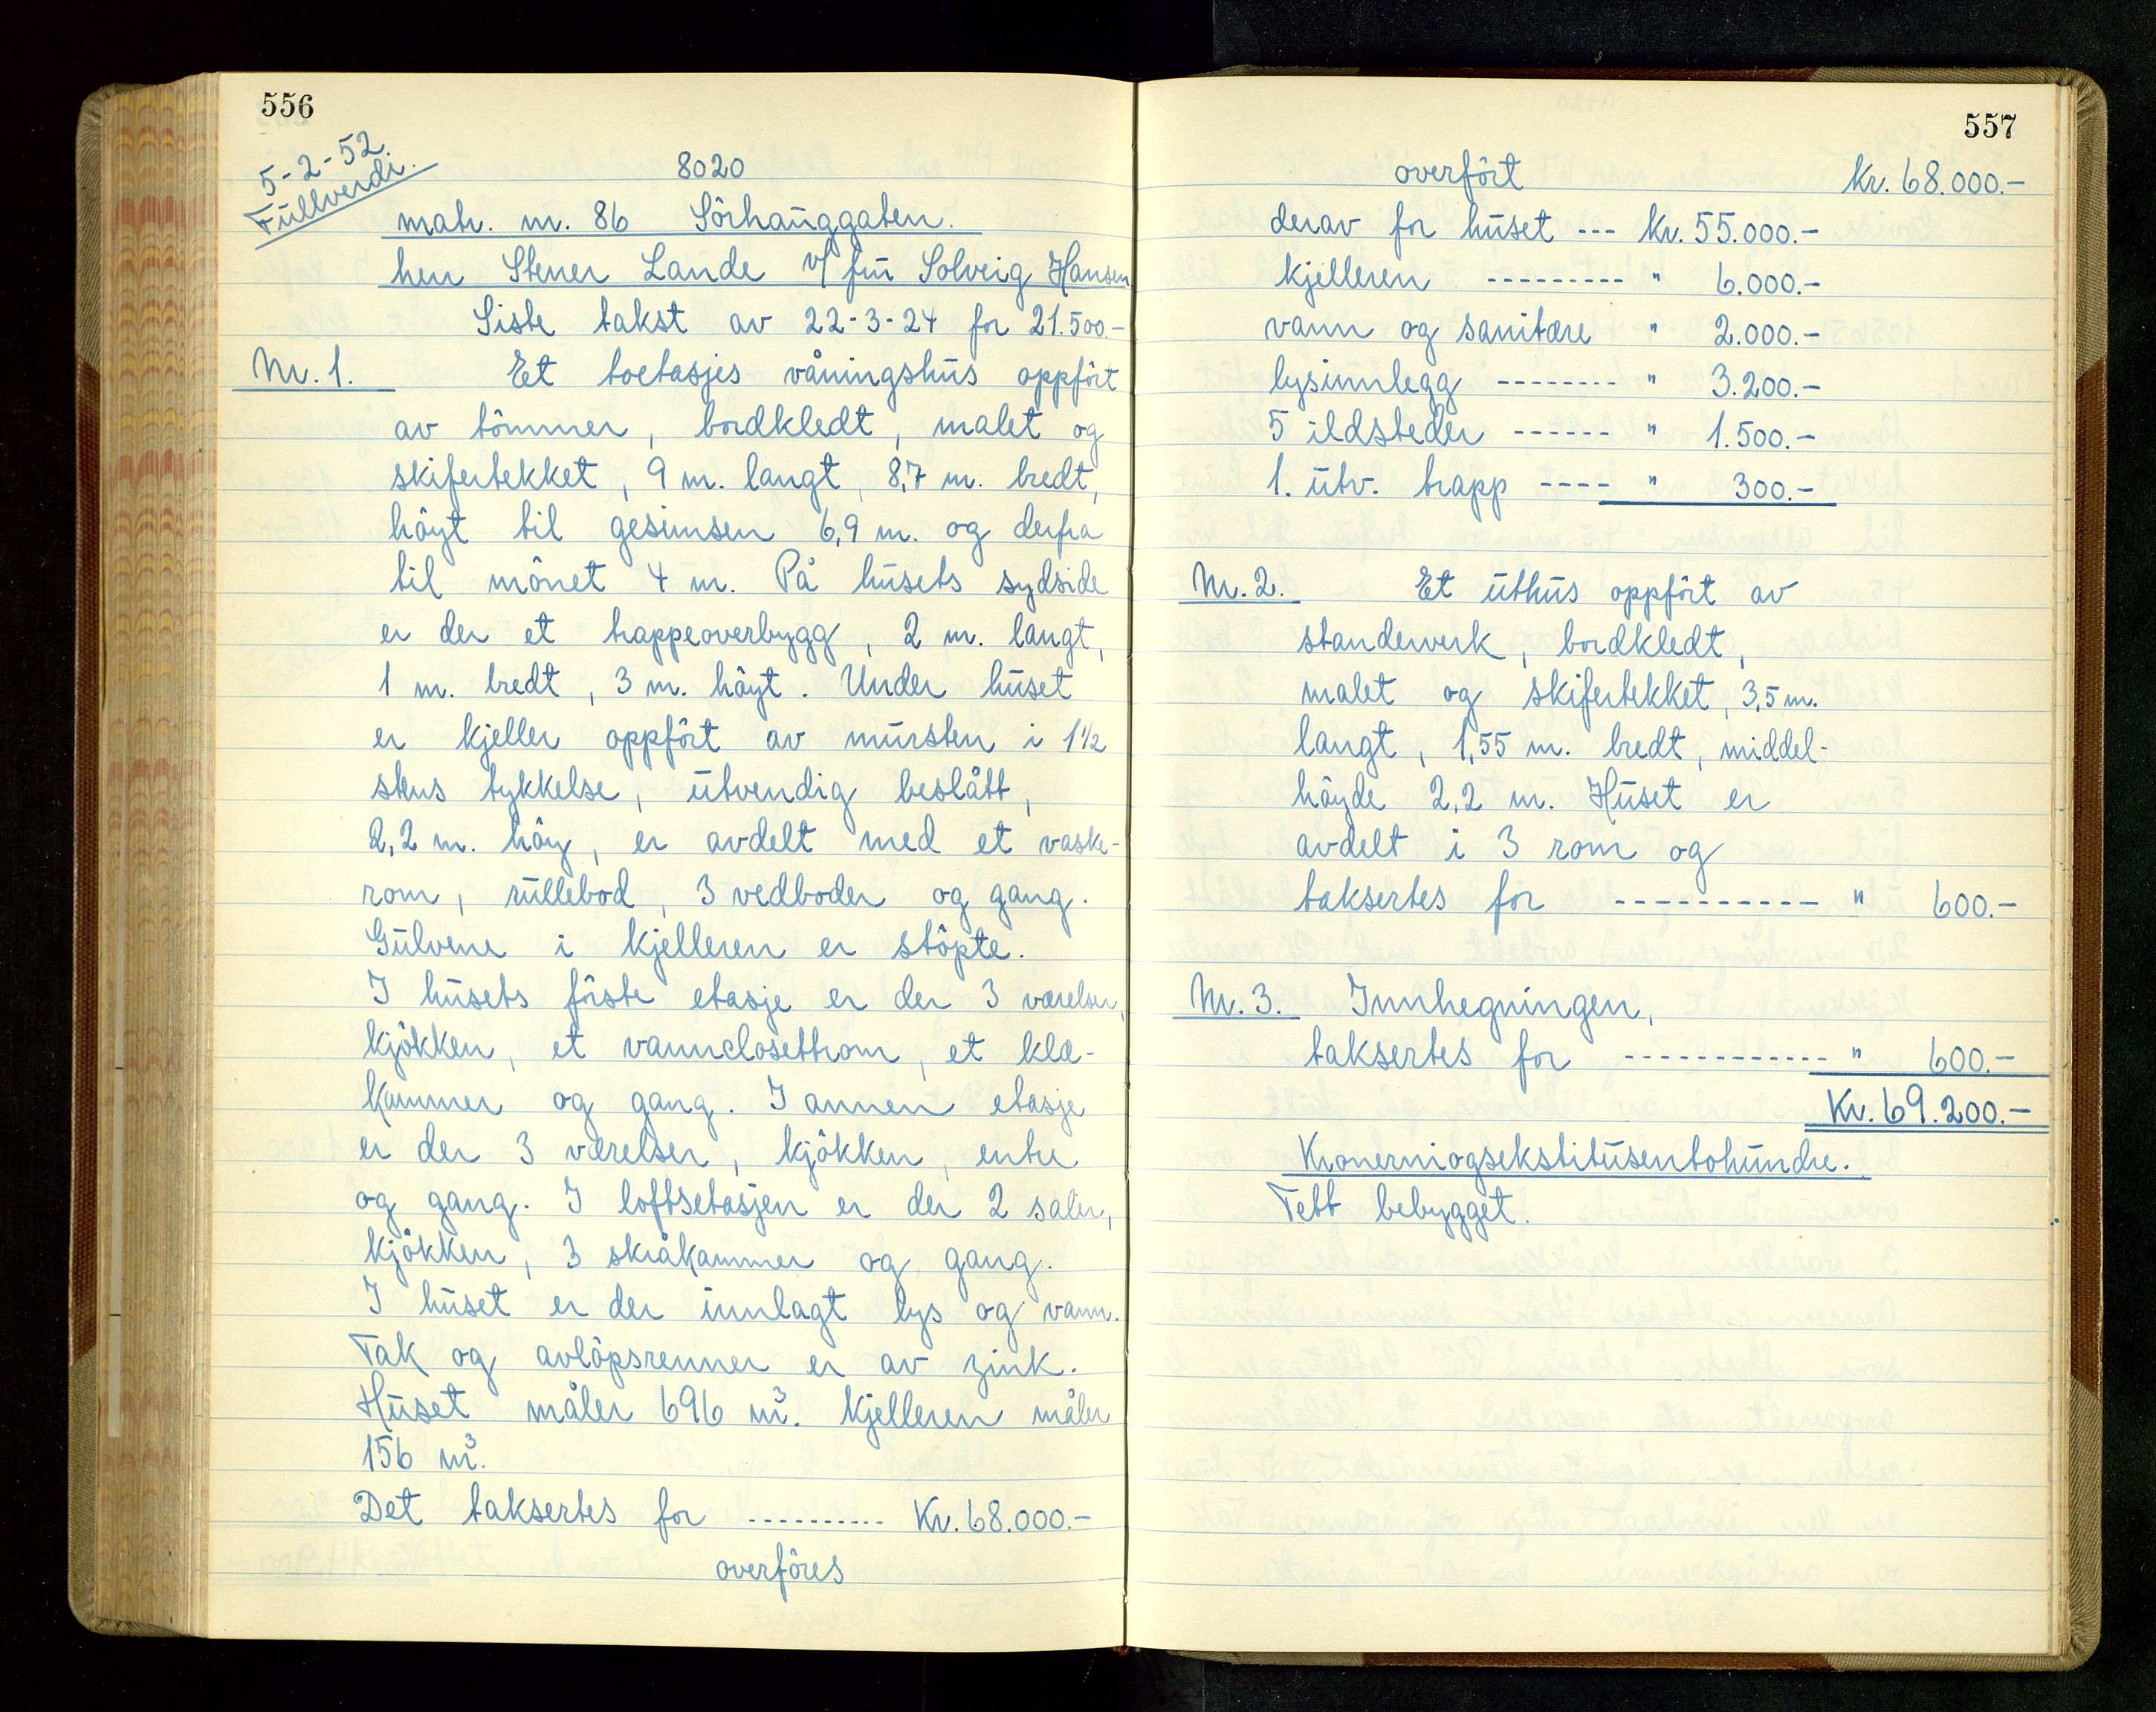 556
5-2-52.
Fullverdi.
8020
matr. nr. 86 Sörhauggaten.
herr Stener Lande v/ fru Solveig Hansen
Siste takst av 22-3-24 for 21.500.-
Nr. 1. Et toetasjes våningshus oppfört
av tömmer, bordkledt, malet og
skifertekket, 9 m. langt, 8,7 m. bredt,
höyt til gesimsen 6,9 m. og derfra
til mönet 4 m. På husets sydside
er der et trappeoverbygg, 2 m. langt,
1 m. bredt, 3 m. höyt. Under huset
er kjeller oppfört av mursten i 1½
stens tykkelse, utvendig beslått,
2,2 m. höy, er avdelt med et vaske-
rom, rullebod, 3 vedboder og gang.
Gulvene i kjelleren er stöpte.
I husets förste etasje er der 3 værelser,
kjökken, et vannclosettrom, et kle-
kammer og gang. I annen etasje
er der 3 værelser, kjökken, entre
og gang. I loftsetasjen er der 2 saler,
kjökken, 3 skråkammer og gang.
I huset er der innlagt lys og vann.
Tak og avlöpsrenner er av zink.
Huset måler 696 m³. Kjelleren måler
156 m³.
Det taksertes for .......... Kr. 68.000.-
overföres
557
overfört Kr. 68.000.-
derav for huset --- Kr. 55.000.-
kjelleren --------- " 6.000.-
vann og sanitære " 2.000.-
lysinnlegg -------- " 3.200.-
5 ildsteder ------ " 1.500.-
1. utv. trapp ---- " 300.-
Nr. 2. Et uthus oppfört av
standerverk, bordkledt,
malet og skifertekket, 3,5 m.
langt, 1,55 m. bredt, middel-
höyde 2,2 m. Huset er
avdelt i 3 rom og
taksertes for ----------- " 600.-
Nr. 3. Innhegningen,
taksertes for ------------ " 600.-
Kr. 69.200.-
Kronerniogsekstitusentohundre.
Tett bebygget.